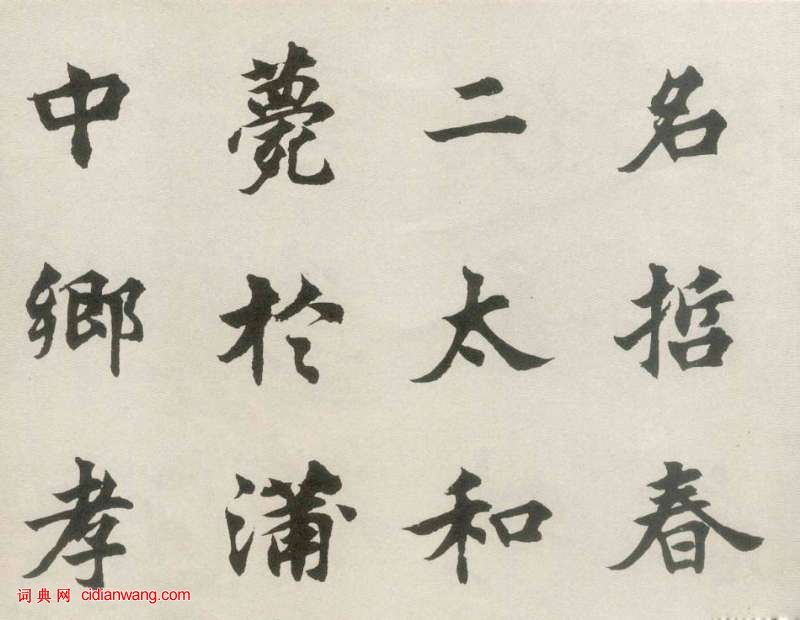 名哲春
二太和
薨於蒲
中鄉孝
词典网 cidianwang.com